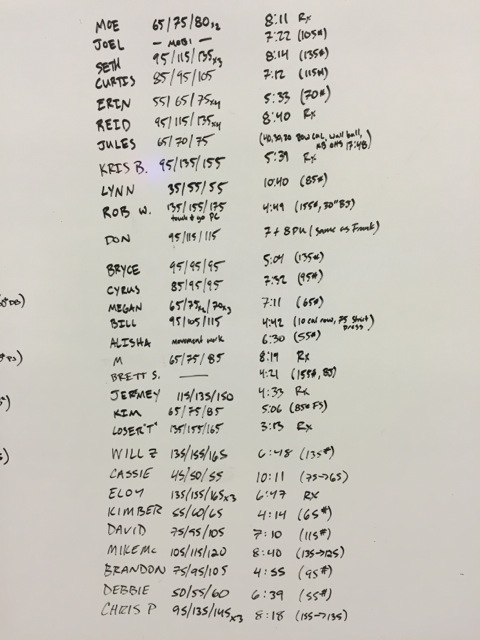 MOE 65/75/80x2 8:11 Rx
JOEL — MOBI — 7:22 (105#)
SETH 95/115/135x3 8:14 (135#)
CURTIS 85/95/105 7:12 (115#)
ERIN 55/65/75x4 5:33 (70#)
REID 95/115/135x4 8:40 Rx
JULES 65/70/75 (40,30,20 Row Cal, wall ball, KB OHS 17:48)
KRIS B. 95/135/155 5:39 Rx
LYNN 35/55/55 10:40 (85#)
ROB W. 135/155/175 4:49 (155#, 30" BJ)
touch & go PC
DON 95/115/115 7 + 8 PU (same as Frank)
BRYCE 95/95/95 5:04 (135#)
CYRUS 85/95/95 7:32 (95#)
MEGAN 65/75x2/70x3 7:11 (65#)
BILL 95/105/115 4:42 (10 cal row, 75 strict press)
ALISHA movement work 6:30 (55#)
M 65/75/85 8:19 Rx
BRETT S. — 4:21 (155#, BJ)
JERMEY 115/135/150 4:33 Rx
KIM 65/75/85 5:06 (85# FS)
LOSER "T" 135/155/165 3:13 Rx
WILL Z 135/155/165 6:48 (135#)
CASSIE 45/50/55 10:11 (75→65)
ELOY 135/155/165x3 6:47 RX
KIMBER 55/60/65 4:14 (65#)
DAVID 75/95/105 7:10 (115#)
MIKE Mc 105/115/120 8:40 (135→125)
BRANDON 75/95/105 4:55 (95#)
DEBBIE 50/55/60 6:39 (55#)
CHRIS P 95/135/145x3 8:18 (155→135)